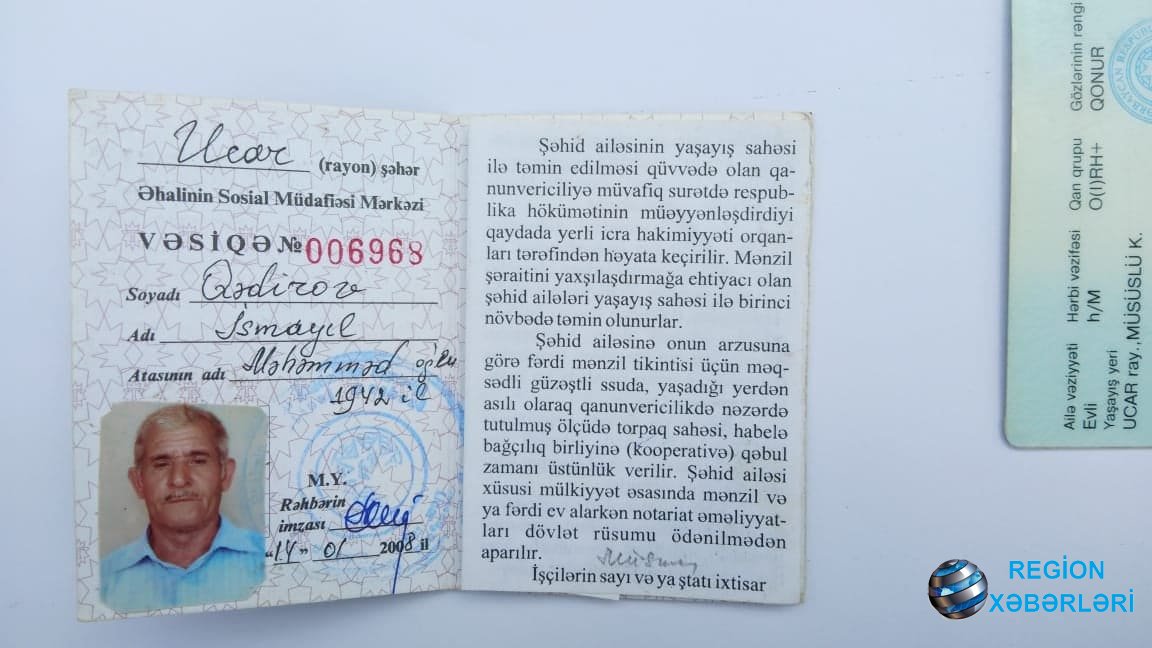 Ucar (rayon) şəhər
Əhalinin Sosial Müdafiəsi Mərkəzi
VƏSİQƏ № 006968
Soyadı Qədirov
Adı İsmayıl
Atasının adı Məhəmməd oğlu
1942 il
M.Y.
Rəhbərin
imzası
"14" 01 2008 il
Şəhid ailəsinin yaşayış sahəsi
ilə təmin edilməsi qüvvədə olan qa-
nunvericiliyə müvafiq surətdə respub-
lika hökümətinin müəyyənləşdirdiyi
qaydada yerli icra hakimiyyəti orqan-
ları tərəfindən həyata keçirilir. Mənzil
şəraitini yaxşılaşdırmağa ehtiyacı olan
şəhid ailələri yaşayış sahəsi ilə birinci
növbədə təmin olunurlar.
Şəhid ailəsinə onun arzusuna
görə fərdi mənzil tikintisi üçün məq-
sədli güzəştli ssuda, yaşadığı yerdən
asılı olaraq qanunvericilikdə nəzərdə
tutulmuş ölçüdə torpaq sahəsi, habelə
bağçılıq birliyinə (kooperativə) qəbul
zamanı üstünlük verilir. Şəhid ailəsi
xüsusi mülkiyyət əsasında mənzil və
ya fərdi ev alarkən notariat əməliyyat-
ları dövlət rüsumu ödənilmədən
aparılır.
İşçilərin sayı və ya ştatı ixtisar
Ailə vəziyyəti Hərbi vəzifəsi Qan qrupu Gözlərinin rəngi
Evli h/M O(I)RH+ QONUR
Yaşayış yeri
UCAR ray.,MÜSÜSLÜ K.
REGİON
XƏBƏRLƏRİ